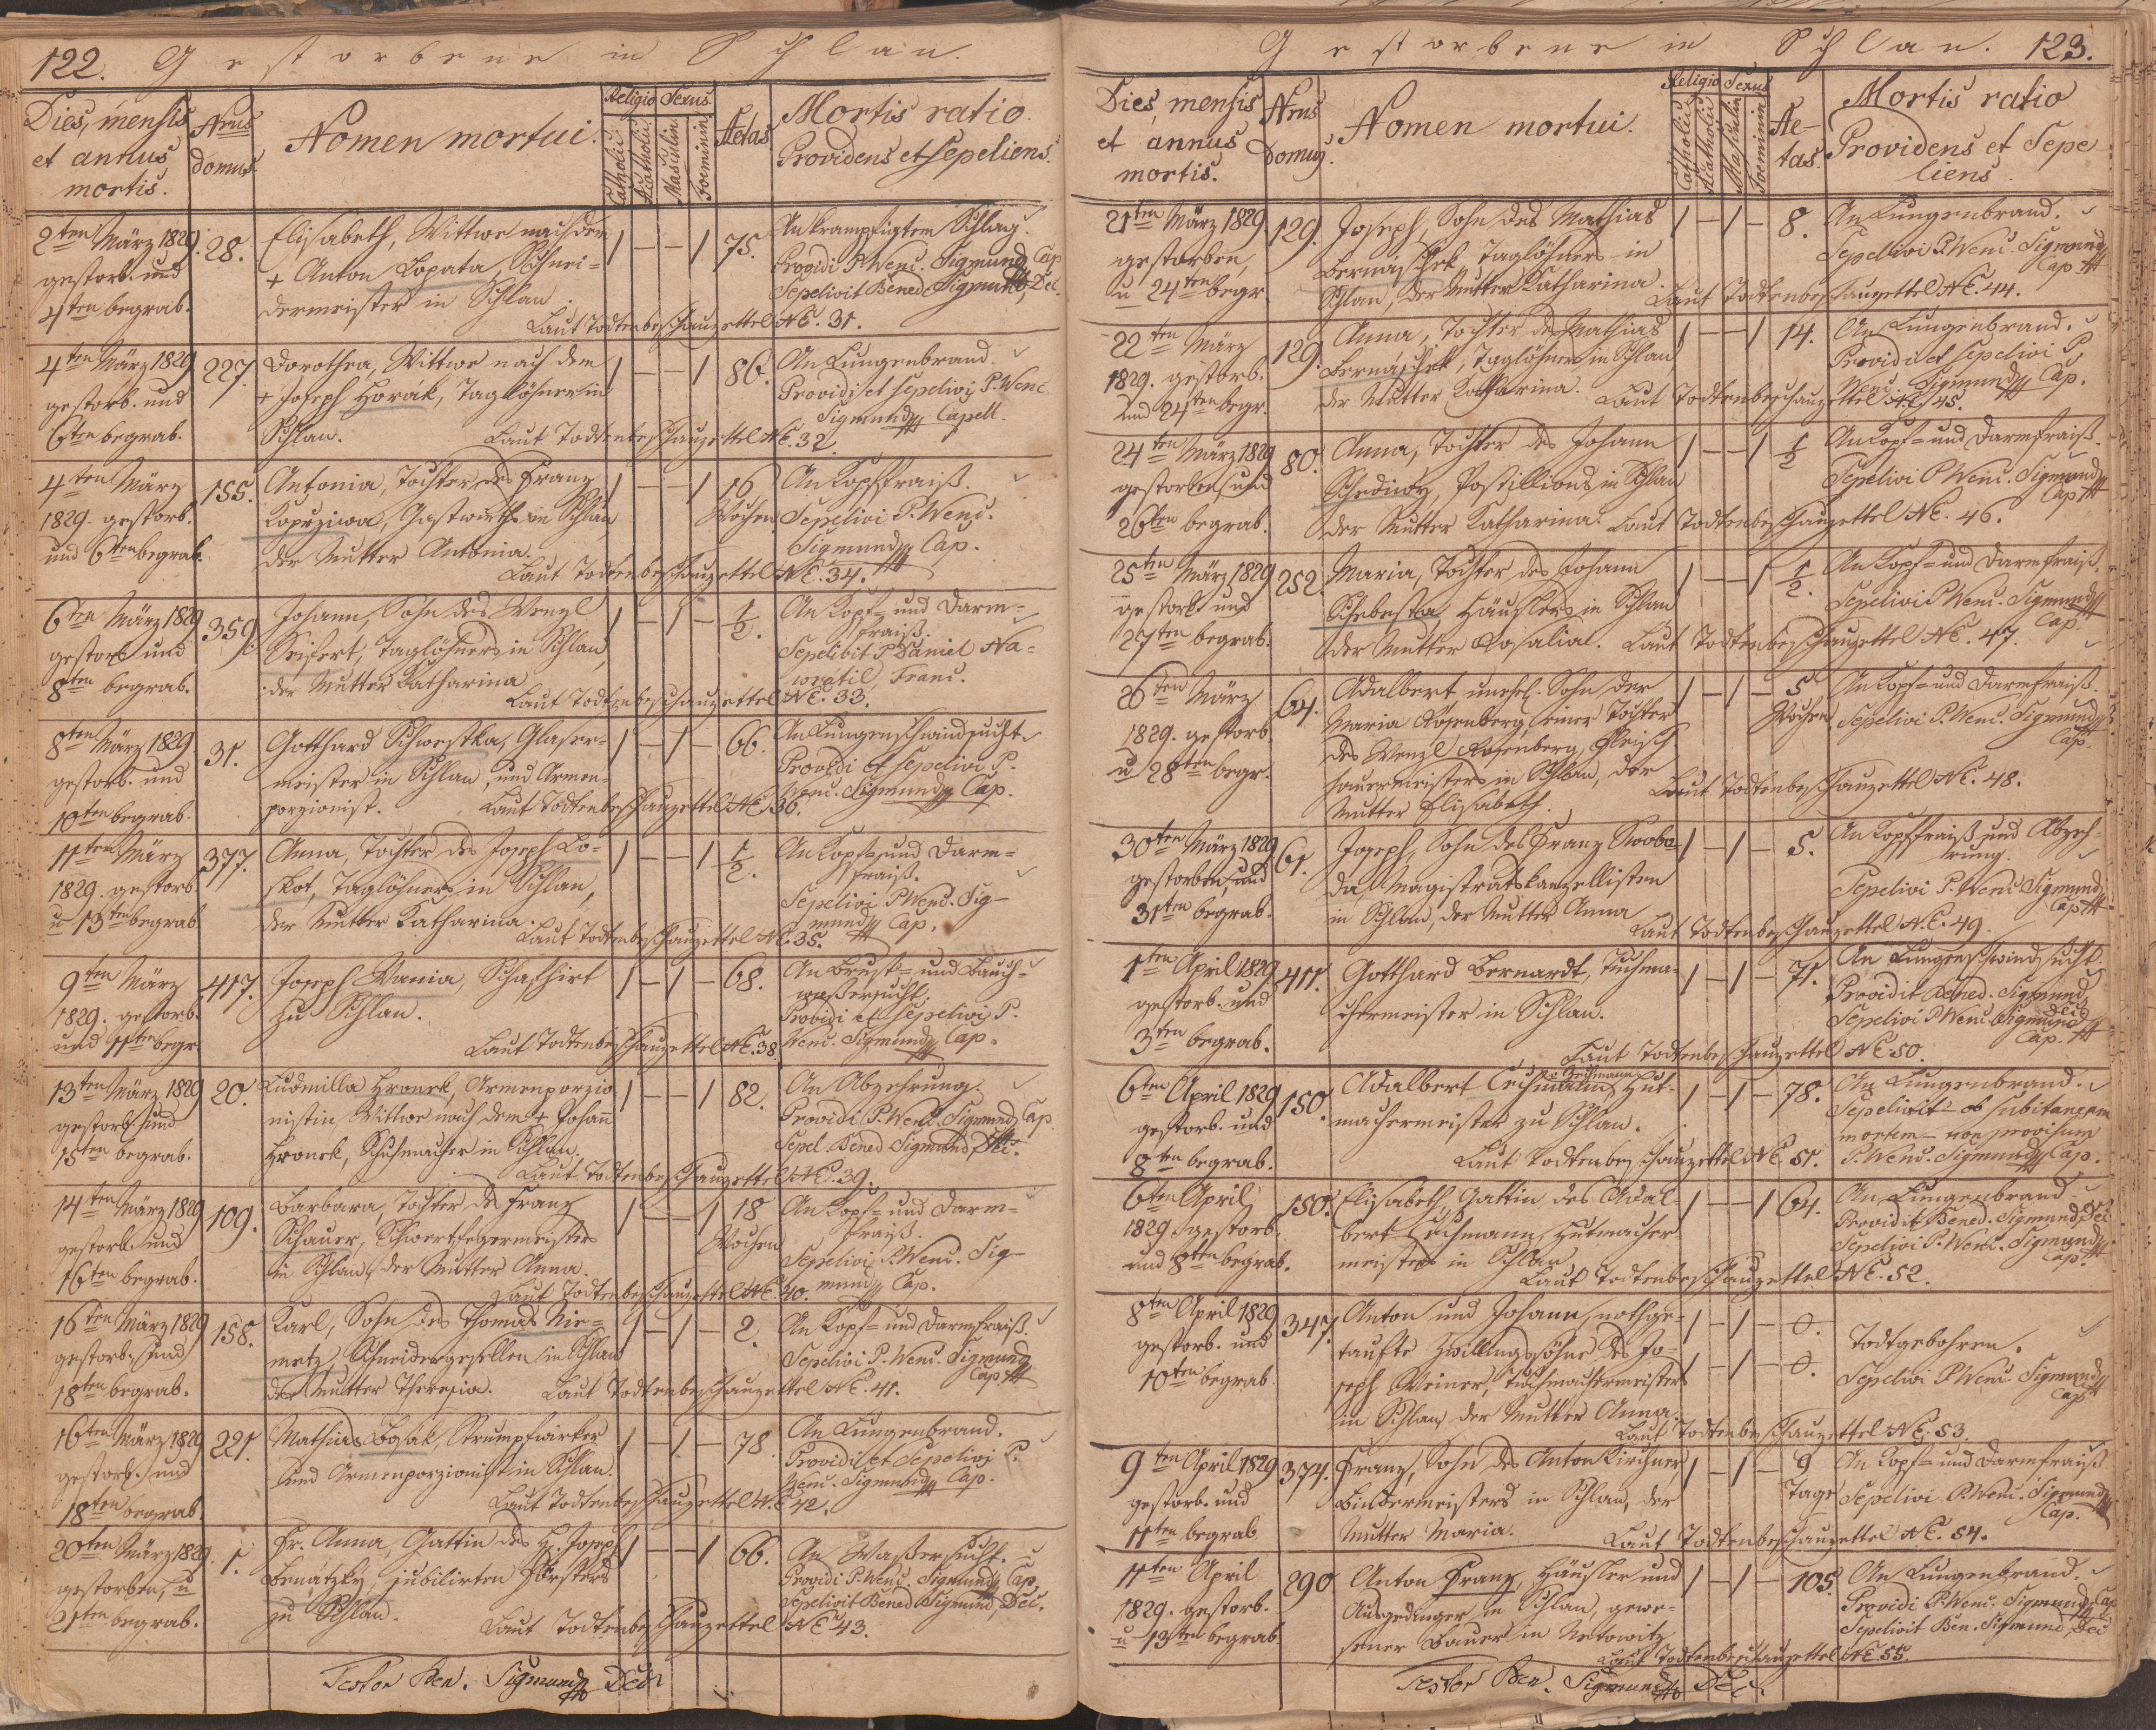 122. Gestorbene in Schlan.
Dies, mensis et annus mortis. Nrus domus. Nomen mortui. Religio Catholici Acatholici Sexus Masculin. Foeminin. Aetas Mortis ratio. Providens et sepeliens.
2ten März 1829. 28. Elisabeth, Wittwe nach dem 1 — — 1 75. An krampfigtem Schlag.
gestorb. und + Anton Lopata, Schnei= Providi P. Wenc. Sigmund Cap
4ten begrab. dermeister in Schlan. Sepelivit Bened. Sigmund, Dec.
Laut Todtenbeschauzettel NE. 31.
4ten März 1829 227. Dorothea, Wittwe nach dem 1 — — 1 86. An Lungenbrand
gestorb. und + Joseph Horák, Taglöhner in Providi et sepelivi P. Wenc
6ten begrab. Schlan. Sigmund Capell.
Laut Todtenbeschauzettel NE. 32.
4ten März 155. Antonia, Tochter des Franz 1 — — 1 16 An Kopffraiß.
1829. gestorb. Kopřziwa, Gastwirths in Schlan Wochen Sepelivi P. Wenc.
und 6ten begrab. der Mutter Antonia. Sigmund Cap.
Laut Todtenbeschauzettel NE. 34.
6ten März 1829 359. Johann, Sohn des Wenzl 1 — 1 — 1/2. An Kopf= und Darm=
gestorb und Seifert, Taglöhners in Schlan, fraiß.
8ten begrab. der Mutter Katharina Sepelivit P Daniel Na=
wratil, Franc.
Laut Todtenbeschauzettel NE. 33.
8ten März 1829 31. Gotthard Schwestka, Glaser= 1 — 1 — 66. An Lungenschwindsucht
gestorb. und meister in Schlan, und Armen= Providi et sepelivi P.
10ten begrab. porzionist. Wenc. Sigmund Cap.
Laut Todtenbeschauzettel NE 36.
11ten März 377. Anna, Tochter des Joseph Lo= 1 — — 1 1/2. An Kopf= und Darm=
1829. gestorb skot, Taglöhners in Schlan, fraiß.
u 13ten begrab der Mutter Katharina. Sepelivi P Wenc. Sig=
mund Cap.
Laut Todtenbeschauzettel NE. 35.
9ten März 417. Joseph Vania, Schafhirt 1 — 1 — 68. An Brust= und Bauch=
1829. gestorb. zu Schlan. wassersucht.
und 11ten begr. Providi et sepelivi P.
Wenc. Sigmund Cap.
Laut Todtenbeschauzettel NE. 38
13ten März 1829 20. Ludmilla Hronek, Armenporzio 1 — — 1 82. An Abzehrung.
gestorb. und nistin, Wittwe nach dem + Johann Providi P. Wenc. Sigmund, Cap.
15ten begrab. Hronek, Schuhmacher in Schlan. Sepel. Bened Sigmund, Dec.
Laut Todtenbeschauzettel NE. 39.
14ten März 1829 109. Barbara, Tochter des Franz 1 — — 1 18 An Kopf= und Darm=
gestorb. und Schauer, Schwertfegermeisters Wochen fraiß.
16ten begrab. in Schlan, der Mutter Anna. Sepelivi P. Wenc. Sig=
mund Cap.
Laut Todtenbeschauzettel NE. 40.
16ten März 1829 158. Karl, Sohn des Thomas Nie= 1 — 1 — 2. An Kopf= und Darmfraiß.
gestorb. und metz, Schneidergesellen in Schlan Sepelivi P. Wenc. Sigmund
18ten begrab. der Mutter Theresia. Cap
Laut Todtenbeschauzettel NE. 41.
16ten März 1829 221. Mathias Bosak, Strumpfwirker 1 — 1 — 78. An Lungenbrand.
gestorb. und und Armenporzionist in Schlan. Providi et Sepelivi P.
18ten begrab Wenc. Sigmund Cap.
Laut Todtenbeschauzettel NE 42.
20ten März 1829. 1. Fr. Anna, Gattin des H. Joseph 1 — — 1 66. An Waßersucht.
gestorben, u Benatzky, jubilirten Försters Providi P. Wenc. Sigmund, Cap.
21ten begrab. zu Schlan. Sepelivit Bened. Sigmund, Dec.
Laut Todtenbeschauzettel NE 43.
Testor Ben. Sigmund Dec.
Gestorbene in Schlan. 123.
Dies, mensis et annus mortis. Nrus Domus. Nomen mortui. Religio Catholici Acatholici Sexus Masculin Foeminin Ae=tas. Mortis ratio Providens et Sepe liens
21ten März 1829 129. Joseph, Sohn des Mathias 1 — 1 — 8. An Lungenbrand.
gestorben, Bernáschek Taglöhners in Sepelivi P. Wenc. Sigmund
u 24ten begr. Schlan, der Mutter Katharina. Cap
Laut Todtenbeschauzettel NE. 44.
22ten März 129. Anna, Tochter des Mathias 1 — — 1 14. An Lungenbrand.
1829. gestorb. Bernáschek, Taglöhner in Schlan Providi et sepelivi P
und 24ten begr. der Mutter Katharina. Wenc. Sigmund Cap.
Laut Todtenbeschauzettel NE. 45.
24ten März 1829 80. Anna, Tochter des Johann 1 — — 1 1/2 An Kopf= und Darmfraiß.
gestorben, und Schediwy, Postillions in Schlan Sepelivi P Wenc. Sigmund
26ten begrab. der Mutter Katharina. Cap
Laut Todtenbeschauzettel NE. 46.
25ten März 1829 252. Maria, Tochter des Johann 1 — — 1 1/2. An Kopf= und Darmfraiß.
gestorb. und Schebesta, Häuslers in Schlan Sepelivi P Wenc. Sigmund
27ten begrab. der Mutter Rosalia. Cap.
Laut Todtenbeschauzettel NE. 47.
26ten März 64. Adalbert unehel. Sohn der 1 — 1 — 5 An Kopf= und Darmfraiß.
1829. gestorb Maria Rosenberg, einer Tochter Wochen Sepelivi P. Wenc. Sigmund
u 28ten begr. des Wenzl Rosenberg, Fleisch Cap.
hauermeisters in Schlan, der
Mutter Elisabeth.
Laut Todtenbeschauzettel NE. 48.
30ten März 1829 61. Joseph, Sohn des Franz Swobo= 1 — 1 — 5. An Kopffraiß und Abzeh=
gestorben, und da, Magistratskanzellisten rung.
31ten begrab. in Schlan, der Mutter Anna Sepelivi P. Wenc Sigmund
Cap
Laut Todtenbeschauzettel NE. 49.
1ten April 1829 411. Gotthard Bernardt, Tuchma= 1 — 1 — 71. An Lungenschwindsucht.
gestorb. und chermeister in Schlan. Providit Bened. Sigmund, Dec
3ten begrab. Sepelivi P Wenc Sigmund
Cap.
Laut Todtenbeschauzettel NE. 50.
6ten April 1829 150. Adalbert Teichmann, Hut= 1 — 1 — 78. An Lungenbrand.
gestorb. und machermeister zu Schlan. Sepelivit ob subitaneam
8ten begrab. mortem non provisum
P. Wenc. Sigmund Cap.
Laut Todtenbeschauzettel NE. 51.
6ten April 150. Elisabeth, Gattin des Adal 1 — — 1 64. An Lungenbrand
1829 gestorb. bert Teichmann, Hutmacher Providit Bened. Sigmund, Dec
und 8ten begrab. meisters in Schlan Sepelivi P. Wenc. Sigmund
Cap.
Laut Todtenbeschauzettel NE. 52.
8ten April 1829 347. Anton und Johann, nothge= 1 — 1 — 0.
gestorb. und taufte Zwillingssöhne des Jo= Todtgebohren.
10ten begrab seph Weiner, Tuchmachermeisters 1 — 1 — 0. Sepelivi P Wenc. Sigmund
in Schlan der Mutter Anna. Cap
Laut Todtenbeschauzettel NE. 53.
9ten April 1829 374. Franz, Sohn des Anton Kirchner, 1 — 1 — 9 An Kopf= und Darmfraiß
gestorb. und Bindermeisters in Schlan, der Tage Sepelivi P. Wenc. Sigmund
11ten begrab Mutter Maria. Cap.
Laut Todtenbeschauzettel NE. 54.
11ten April 290 Anton Franz, Häusler und 1 — 1 — 105. An Lungenbrand.
1829. gestorb. Ausgedinger in Schlan, gewe= Providi P. Wenc. Sigmund, Cap
u 13ten begrab sener Bauer in Netowitz Sepelivit Ben. Sigmund, Dec
Laut Todtenbeschauzettel NE. 55.
Testor Ben. Sigmund Dec.